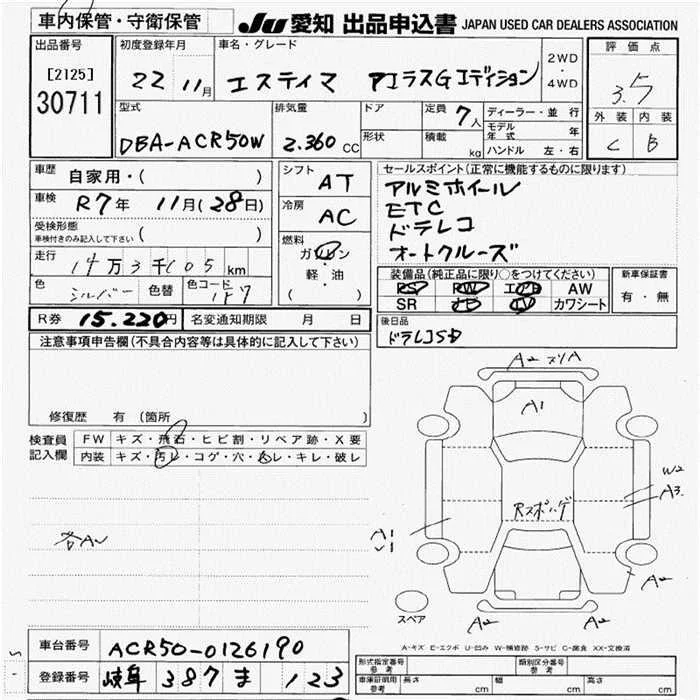 車内保管・守衛保管
JU 愛知 出品申込書 JAPAN USED CAR DEALERS ASSOCIATION
出品番号
[2125]
30711
初度登録年月
22 11月
車名・グレード
エスティマ アエラスGエディション
2WD
・
4WD
評価点
3.5
外装 内装
C B
型式
DBA-ACR50W
排気量
2.360 CC
ドア
形状
定員 7人
積載 kg
ディーラー・並行
モデル年式 年
ハンドル 左・右
車歴 自家用・( )
車検 R7年 11月(28日)
受検形態
車検付きのみ記入して下さい ( )
走行 14万3千105km
色 シルバー 色替 色コード 1F7
シフト AT
冷房 AC
燃料
ガソリン
軽・油
( )
セールスポイント(正常に機能するものに限ります)
アルミホイール
ETC
ドラレコ
オートクルーズ
装備品(純正品に限り○をつけてください)
PS PW エアB AW
SR ナビ TV カワシート
新車保証書
有・無
R券 15.220円 名変通知期限 月 日
後日品
ドラレコSD
注意事項申告欄(不具合内容等は具体的に記入して下さい)
修復歴 有(箇所 )
検査員記入欄
FW キズ・飛石・ヒビ割・リペア跡・X要
内装 キズ・汚レ・コゲ・穴・スレ・キレ・破レ
各A
A2 スリA
A1
W2
A3
Rスポイラー
A1
A2
A2
A2
スペア
A-キズ E-エクボ U-凹み W-補修跡 S-サビ C-腐食 XX-交換済
車台番号 ACR50-0126190
登録番号 岐阜 387 ま 123
型式指定番号
参考
類別区分番号
参考
車庫証明用
参考
長さ cm 幅 cm 高さ cm